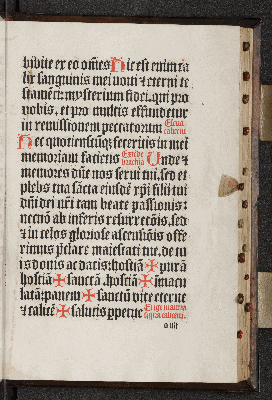 bibite ex eo om̄es Hic est enim ca
lix sanguinis mei noui ⁊ eterni te
stamēti: mysterium fidei. qui pro
vobis, et pro multis effundetur
in remissionem peccatorum Eleua
calicem
Hec quotienscūqꝫ feceritis in mei
memoriam facietis Unde ⁊
memores dn̄e nos serui tui, sed et
plebs tua sācta eiusdē xp̄i filij tui
dn̄i dei nr̄i tam beate passionis:
necnō ab inferis resurrectōis, sed
⁊ in celos gloriose ascensiōis offe
rimus p̄clare maiestati tue, de tu
is donis ac datis: hostiā ✠ purā
hostiā ✠ sanctā. hostiā ✠ imacu
latā: panem ✠ sanctū vite eterne
⁊ calicē ✠ salutis ꝑpetue